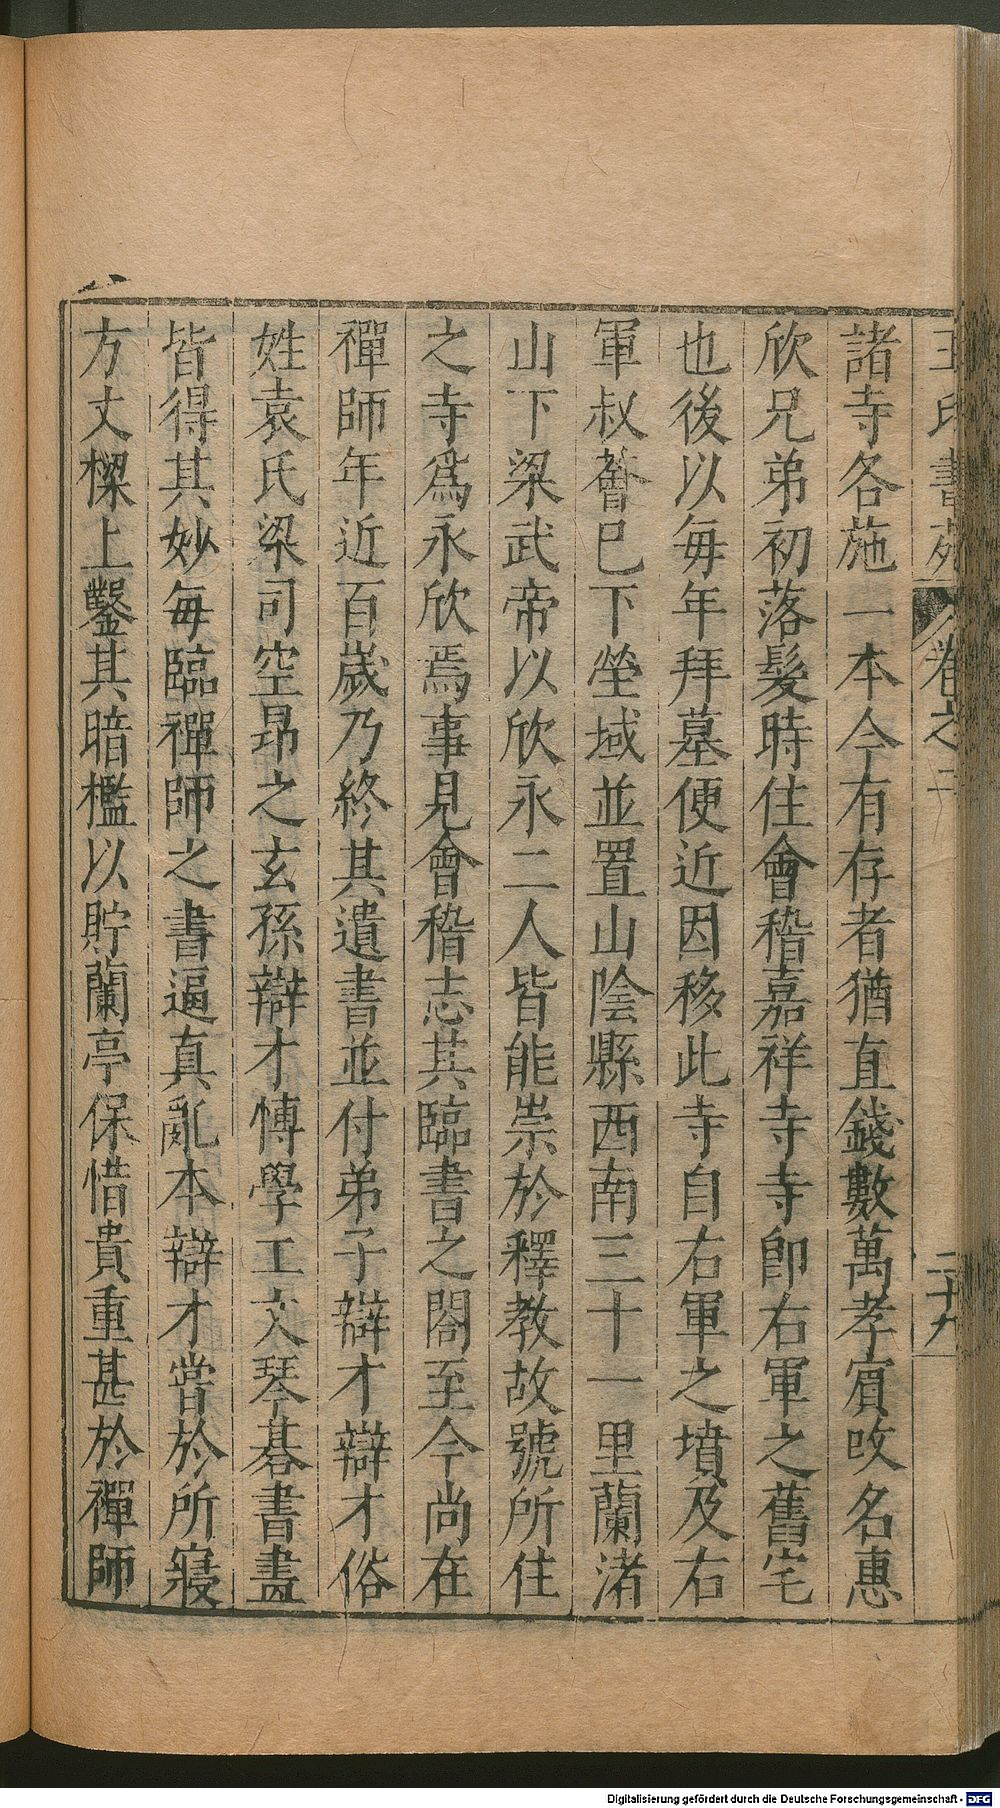 王氏書苑 卷之二 二十九
諸寺各施一本今有存者猶直錢數萬孝賔攺名惠
欣兄弟初落髮時住會稽嘉祥寺寺卽右軍之舊宅
也後以每年拜墓便近因移此寺自右軍之墳及右
軍叔薈已下塋域並置山陰縣西南三十一里蘭渚
山下梁武帝以欣永二人皆能崇於釋教故號所住
之寺爲永欣焉事見會稽志其臨書之閣至今尚在
禪師年近百歲乃終其遺書並付弟子辯才辯才俗
姓袁氏梁司空昂之玄孫辯才愽學工文琴碁書畫
皆得其妙每臨禪師之書逼真亂本辯才嘗於所寢
方丈樑上鑿其暗檻以貯蘭亭保惜貴重甚於禪師
Digitalisierung gefördert durch die Deutsche Forschungsgemeinschaft - DFG